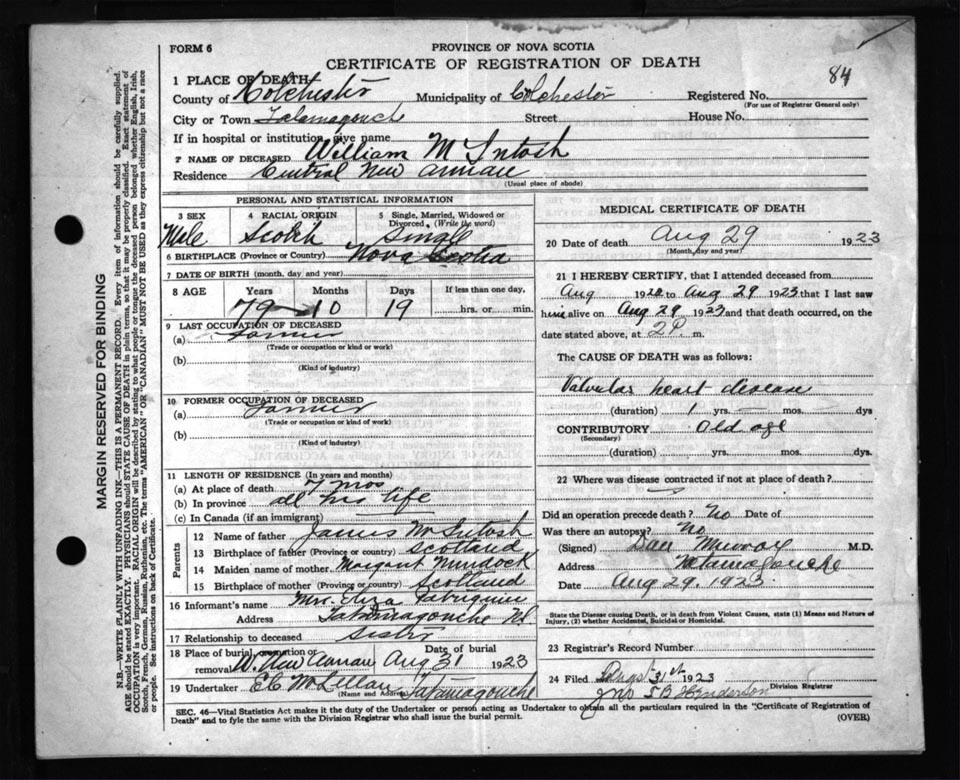 84
FORM 6
PROVINCE OF NOVA SCOTIA
CERTIFICATE OF REGISTRATION OF DEATH
1 PLACE OF DEATH
County of Kolchester Municipality of Colchester Registered No.
(For use of Registrar General only)
City or Town Tatamagouch Street House No.
If in hospital or institution, give name
2 NAME OF DECEASED William McIntosh
Residence Central New Annan
(Usual place of abode)
PERSONAL AND STATISTICAL INFORMATION
3 SEX 4 RACIAL ORIGIN 5 Single, Married, Widowed or Divorced, (Write the word)
Male Scotch Single
6 BIRTHPLACE (Province or Country) Nova Scotia
7 DATE OF BIRTH (month, day and year)
8 AGE Years Months Days If less than one day,
79 10 19 hrs. or min.
9 LAST OCCUPATION OF DECEASED
(a) Farmer
(Trade or occupation or kind of work)
(b)
(Kind of industry)
10 FORMER OCCUPATION OF DECEASED
(a) Farmer
(Trade or occupation or kind of work)
(b)
(Kind of industry)
11 LENGTH OF RESIDENCE (In years and months)
(a) At place of death 7 mos
(b) In province all his life
(c) In Canada (if an immigrant)
Parents
12 Name of father James McIntosh
13 Birthplace of father (Province or country) Scotland
14 Maiden name of mother Margaret Murdock
15 Birthplace of mother (Province or country) Scotland
16 Informant's name Mrs. Eliza
Address Tatamagouche NS
17 Relationship to deceased Sister
18 Place of burial, cremation or removal W. New Annan Date of burial Aug 31 1923
19 Undertaker E C McLellan Tatamagouche
(Name and Address)
MEDICAL CERTIFICATE OF DEATH
20 Date of death Aug 29 1923
(Month, day and year)
21 I HEREBY CERTIFY, that I attended deceased from
Aug 1920 to Aug 29 1923 that I last saw
him alive on Aug 29 1923 and that death occurred, on the
date stated above, at 2 P. m.
The CAUSE OF DEATH was as follows:
Valvular heart disease
(duration) 1 yrs. mos. dys
CONTRIBUTORY Old age
(Secondary)
(duration) yrs. mos. dys.
22 Where was disease contracted if not at place of death?
Did an operation precede death? No Date of
Was there an autopsy? No
(Signed) Dan Murray M.D.
Address Tatamagouche
Date Aug 29. 1923
State the Disease causing Death, or in death from Violent Causes, state (1) Means and Nature of
Injury, (2) whether Accidental, Suicidal or Homicidal.
23 Registrar's Record Number
24 Filed Aug 31st 1923
Jno S B Henderson Division Registrar
SEC. 46—Vital Statistics Act makes it the duty of the Undertaker or person acting as Undertaker to obtain all the particulars required in the "Certificate of Registration of
Death" and to fyle the same with the Division Registrar who shall issue the burial permit.
(OVER)
MARGIN RESERVED FOR BINDING
N.B.—WRITE PLAINLY WITH UNFADING INK—THIS IS A PERMANENT RECORD. Every item of information should be carefully supplied.
AGE should be stated EXACTLY. PHYSICIANS should STATE CAUSE OF DEATH in plain terms, so that it may be properly classified. Exact statement of
OCCUPATION is very important. RACIAL ORIGIN will be described by stating to what people or tongue the deceased person belonged whether English, Irish,
Scotch, French, German, Russian, Ruthenian, etc. The terms "AMERICAN" OR "CANADIAN" MUST NOT BE USED as they express citizenship but not a race
or people. See instructions on back of Certificate.